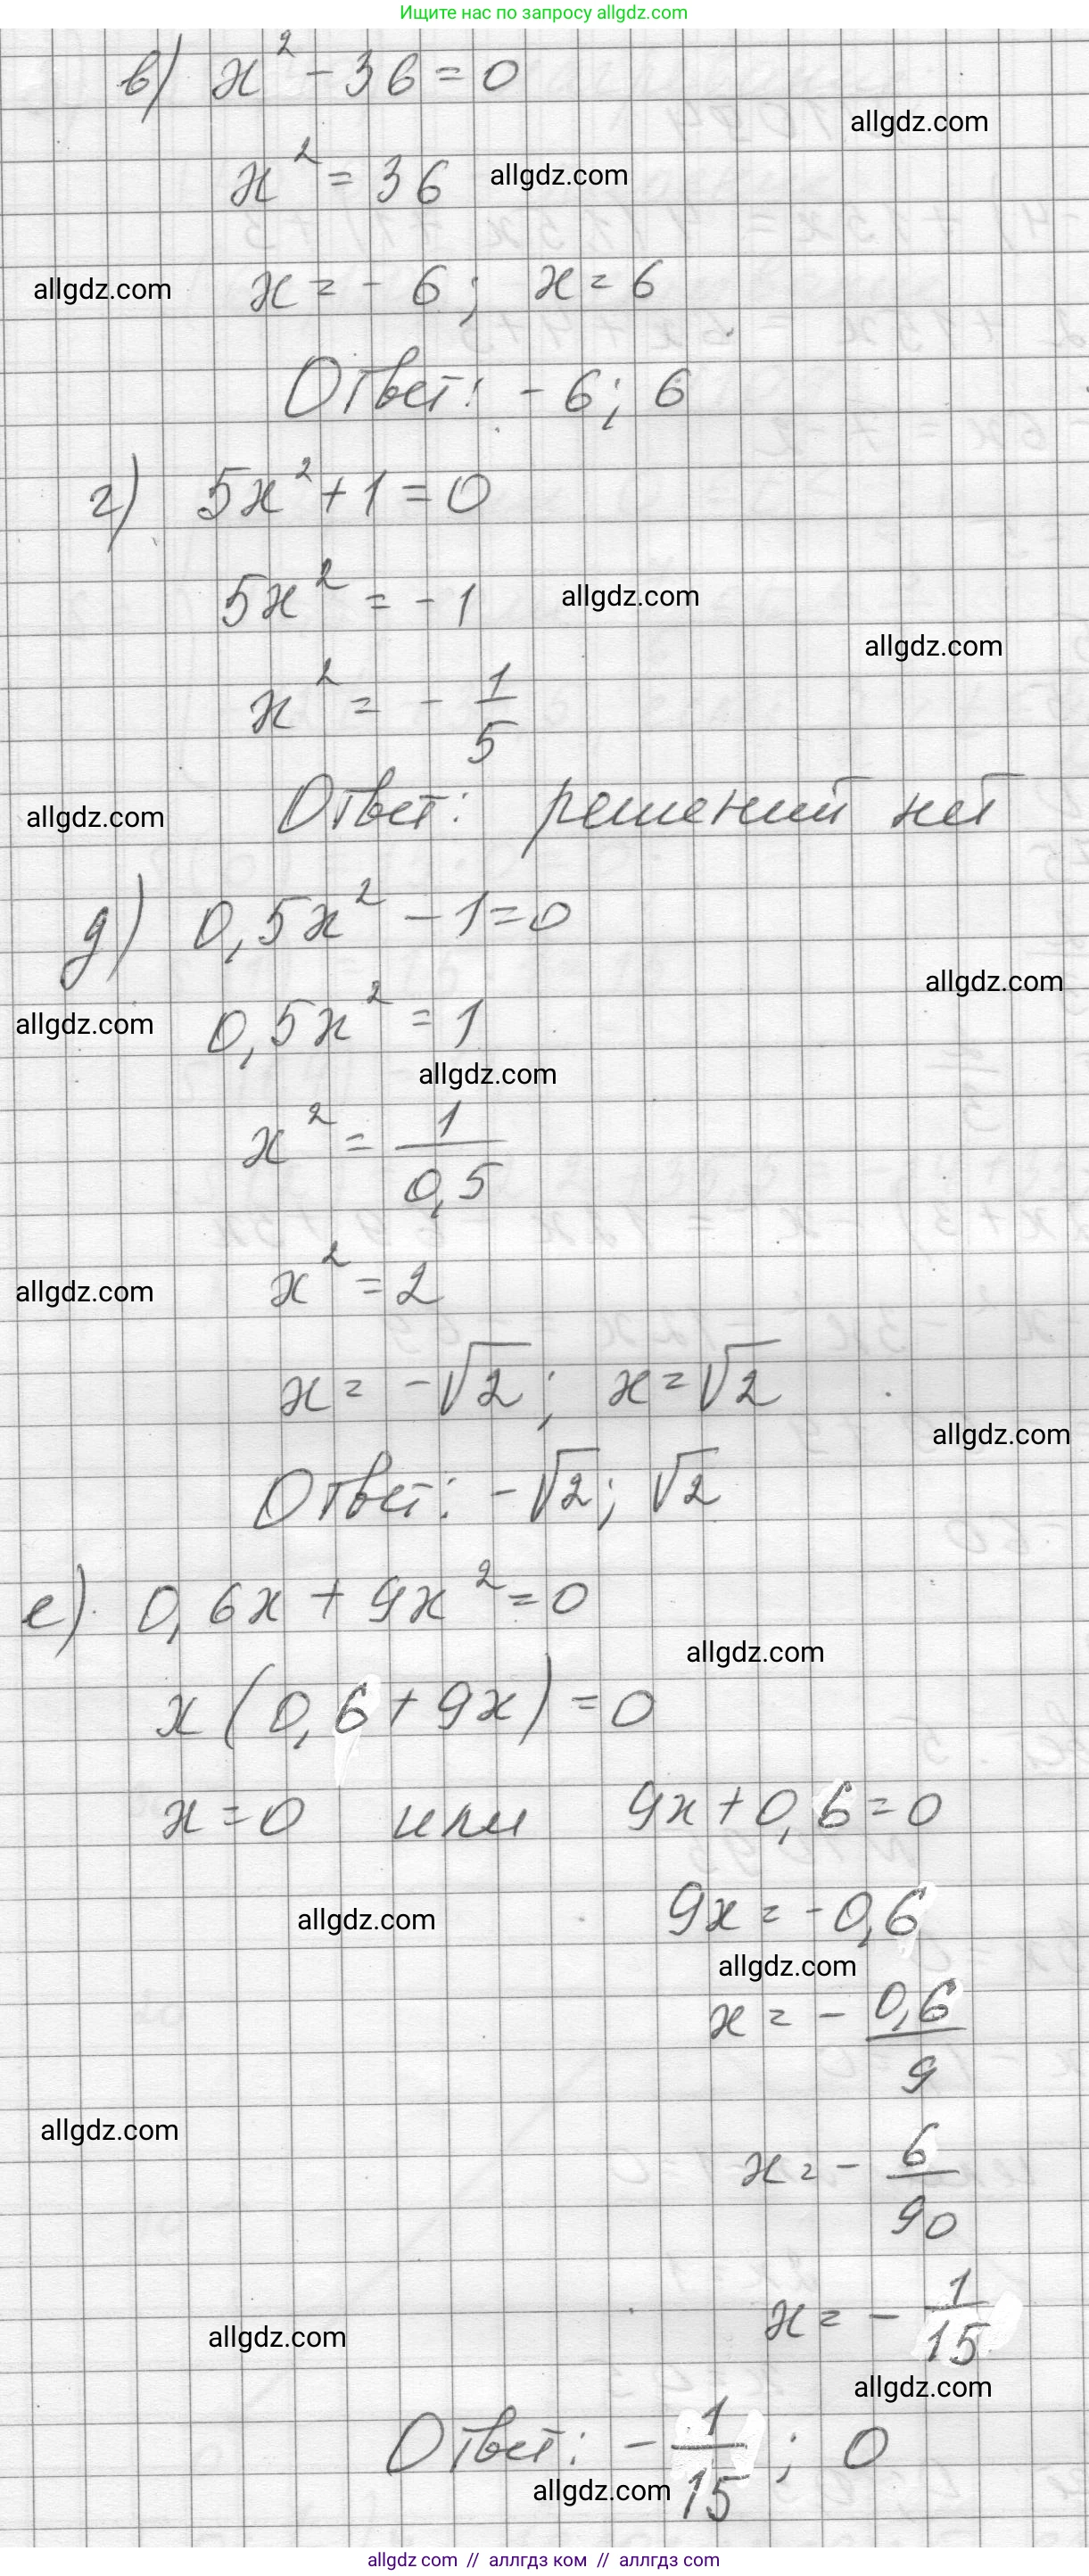 Ищите нас по запросу allgdz.com
в) x² - 36 = 0
allgdz.com
x² = 36
allgdz.com
allgdz.com
x = - 6; x = 6
Ответ: - 6; 6
г) 5x² + 1 = 0
5x² = - 1
allgdz.com
allgdz.com
x² = - 1/5
allgdz.com
Ответ: решений нет
д) 0,5x² - 1 = 0
allgdz.com
allgdz.com
0,5x² = 1
allgdz.com
x² = 1/0,5
allgdz.com
x² = 2
x = -√2; x = √2
allgdz.com
Ответ: -√2; √2
е) 0,6x + 9x² = 0
allgdz.com
x (0,6 + 9x) = 0
x = 0 или 9x + 0,6 = 0
allgdz.com
9x = -0,6
allgdz.com
x = - 0,6/9
allgdz.com
x = - 6/90
allgdz.com
x = - 1/15
allgdz.com
Ответ: - 1/15; 0
allgdz.com
allgdz com // аллгдз ком // аллгдз com